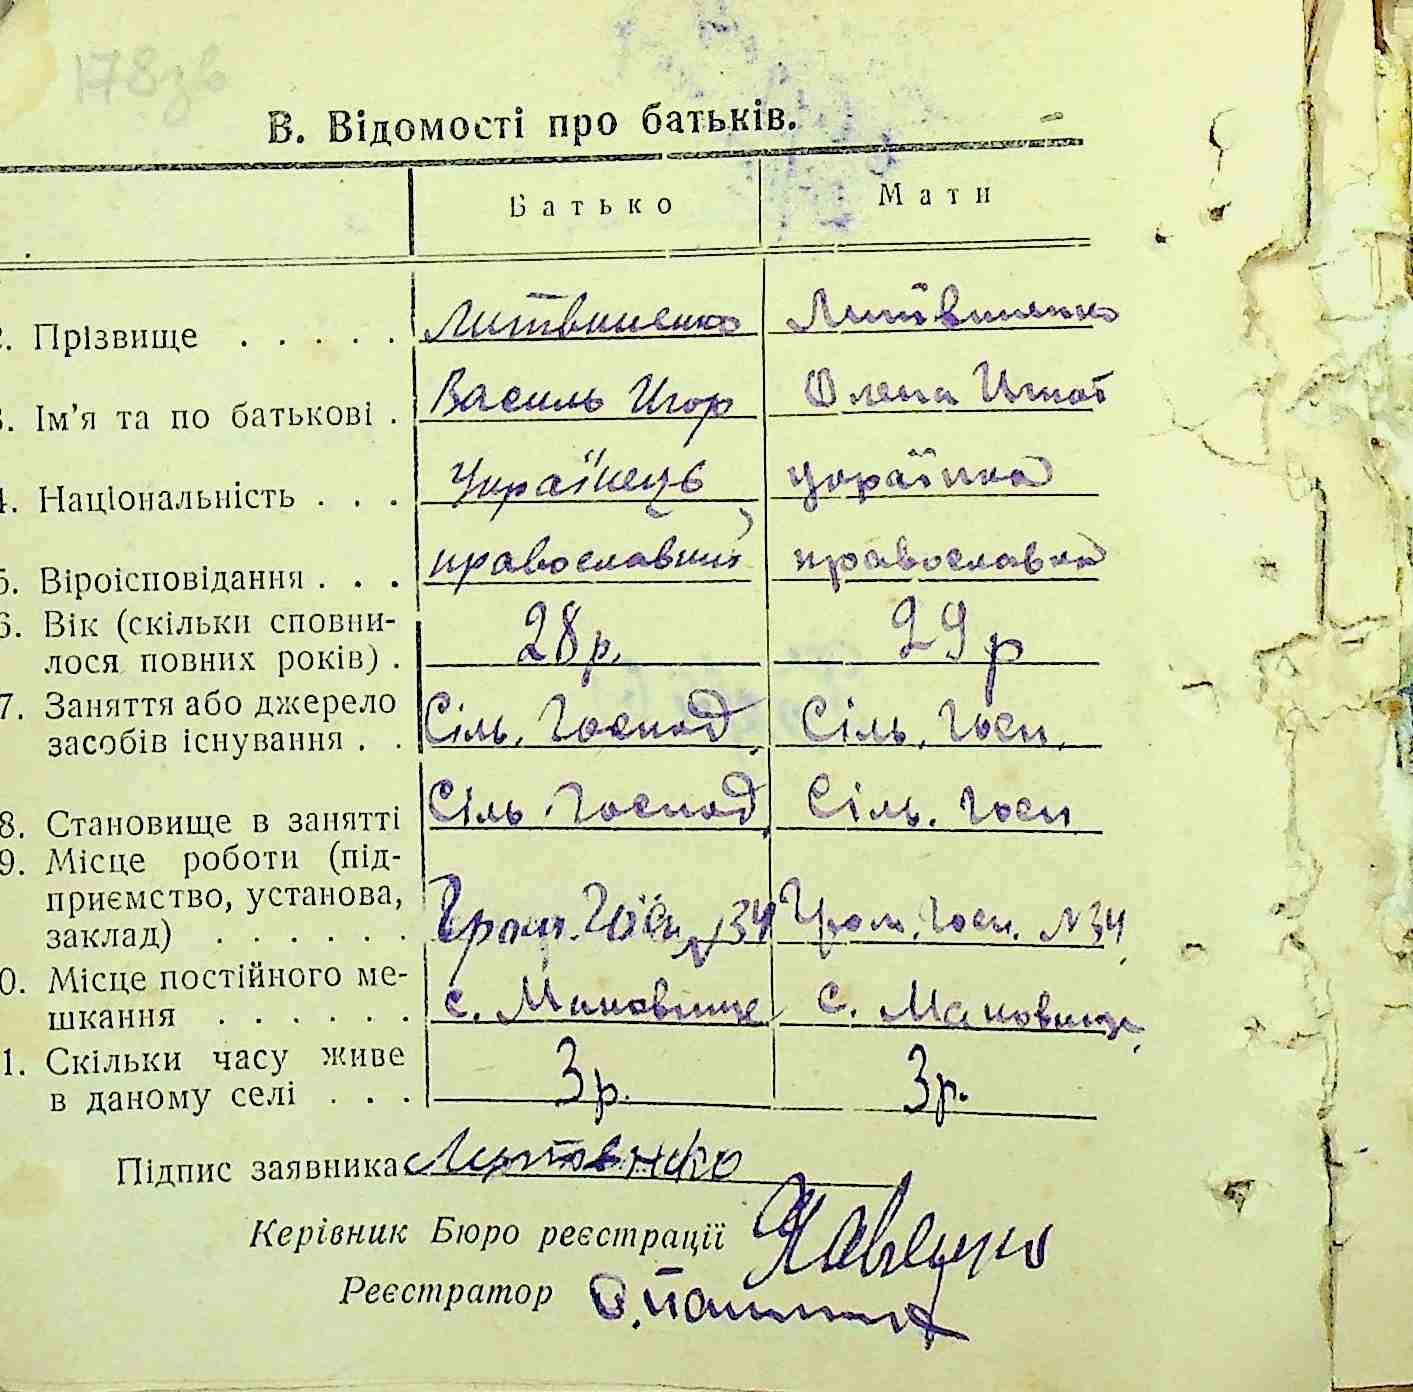 178зв
В. Відомості про батьків.
Батько Мати
2. Прізвище . . . . . Литвиненко Литвиненко
3. Ім'я та по батькові . Василь Игор Олена Игнат
4. Національність . . . Українець українка
5. Віроісповідання . . . православний православна
6. Вік (скільки сповни-
лося повних років) . 28 р. 29 р
7. Заняття або джерело
засобів існування . . Сіль. Господ. Сіль. Госп.
8. Становище в занятті Сіль. Господ. Сіль. Госп
9. Місце роботи (під-
приємство, установа,
заклад) . . . . . . Гром. Госп. №34 Гром. Госп. №34
0. Місце постійного ме-
шкання . . . . . . с. Маковище с. Маковище
1. Скільки часу живе
в даному селі . . . 3 р. 3 р.
Підпис заявника Литовнко
Керівник Бюро реєстрації
Реєстратор